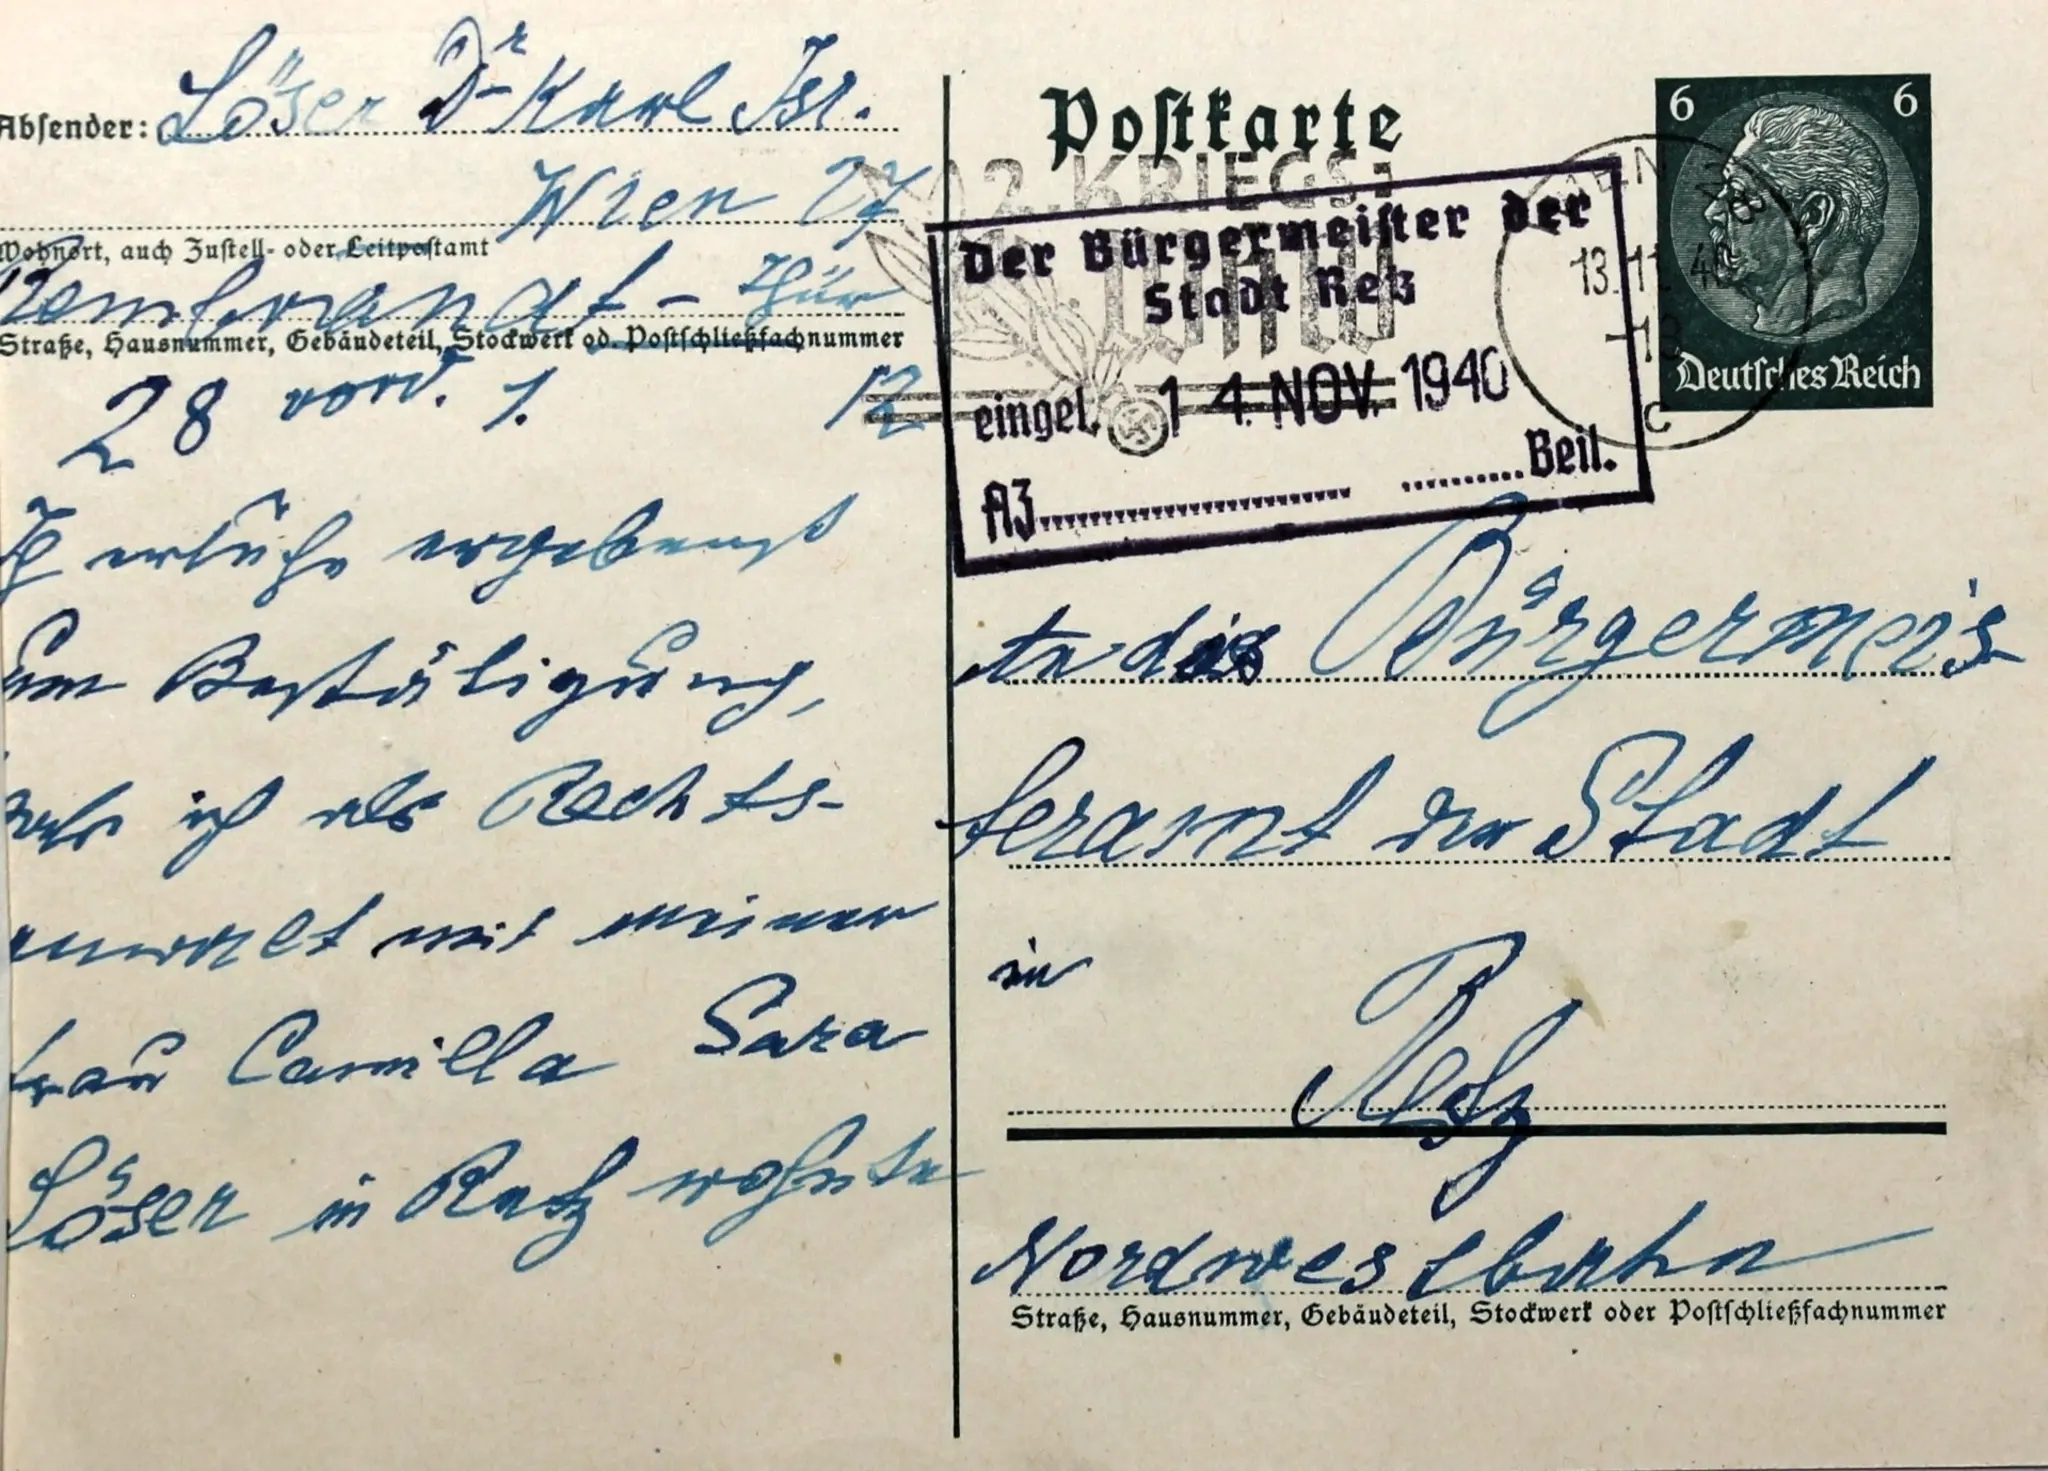 Absender: Löser Dr Karl Isr.
Wien 27
Wohnort, auch Zustell- oder Leitpostamt
Rembrandt - Thür
Straße, Hausnummer, Gebäudeteil, Stockwerk od. Postschließfachnummer
28 vord. 1. 12
Ich ersuche ergebenst
um Bestätigung,
daß ich als Rechts-
anwalt mit meiner
Frau Camilla Sara
Löser in Retz wohnte
Postkarte
6 6
Deutsches Reich
2. KRIEGS-
WHW
WIEN
13.11.40
c
Der Bürgermeister der
Stadt Retz
eingel. 14. NOV. 1940
AZ.......... ..........Beil.
An das Bürgermeis-
teramt der Stadt
in Retz
Nordwestbahn
Straße, Hausnummer, Gebäudeteil, Stockwerk oder Postschließfachnummer